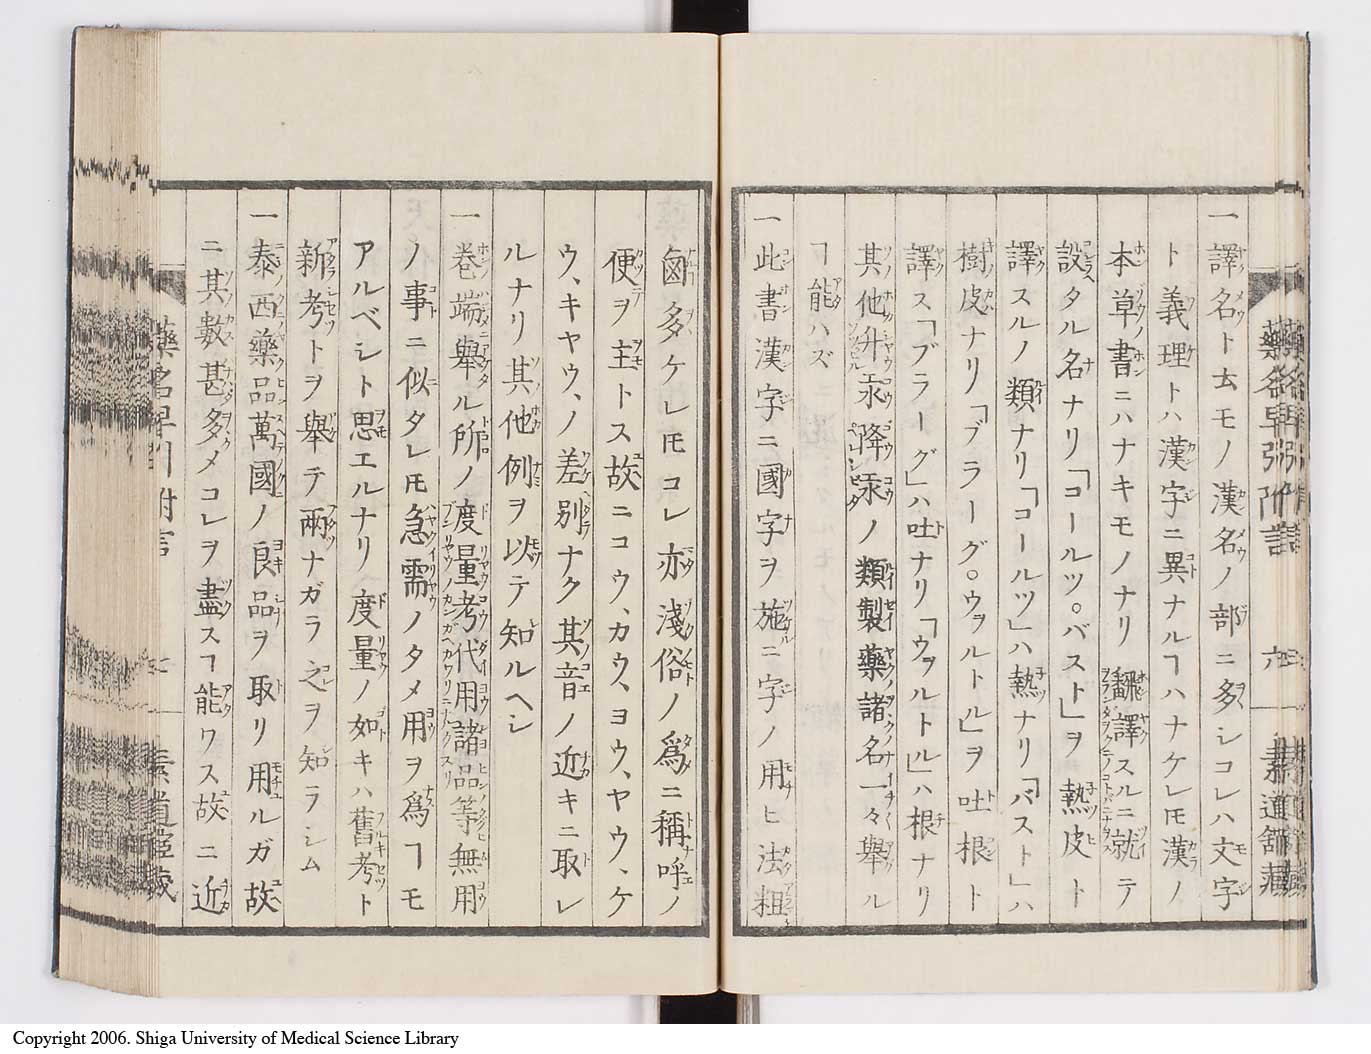 一譯名ト云モノ漢名ノ部ニ多シコレハ文字
ト義理トハ漢字ニ異ナルヿハナケレ𪜈漢ノ
本草書ニハナキモノナリ翻譯スルニ就テ
設タル名ナリ「コールツ。バスト」ヲ熱皮ト
譯スルノ類ナリ「コールツ」ハ熱ナリ「バスト」ハ
樹皮ナリ「ブラーグ。ウヲルトル」ヲ吐根ト
譯ス「ブラーグ」ハ吐ナリ「ウヲルトル」ハ根ナリ
其他升汞降汞ノ類製藥諸名一々舉ル
ヿ能ハズ
一此書漢字ニ國字ヲ施ニ字ノ用ヒ法粗
鹵多ケレ𪜈コレ亦淺俗ノ爲ニ稱呼ノ
便ヲ主トス故ニコウ、カウ、ヨウ、ヤウ、ケ
ウ、キヤウ、ノ差別ナク其音ノ近キニ取レ
ルナリ其他例ヲ以テ知ルヘシ
一巻端舉ル所ノ度量考代用諸品等無用
ノ事ニ似タレ𪜈急需ノタメ用ヲ爲ヿモ
アルベシト思エルナリ度量ノ如キハ舊考ト
新考トヲ舉テ兩ナガラ之ヲ知ラシム
一泰西藥品萬國ノ良品ヲ取リ用ルガ故
ニ其數甚多メコレヲ盡スヿ能ワス故ニ近
藥名早引 附言
Copyright 2006. Shiga University of Medical Science Library